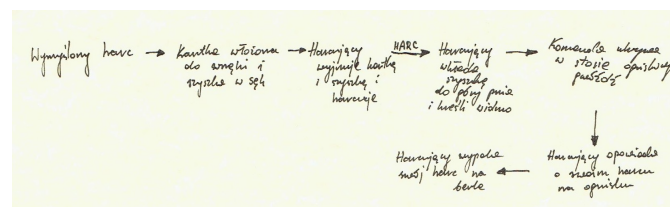 Wymyślony harc
Kartka włożona
do wnęki i
szyszka w sęk
Harcujący
wyjmuje kartkę
i szyszkę i
harcuje
HARC
Harcujący
wkłada
szyszkę
do góry pnia
i kreśli widmo
Komenda
w stosie ogniskowym
Harcujący opowiada
o swoim harcu
na ognisku
Harcujący wypala
swój harc na
berle